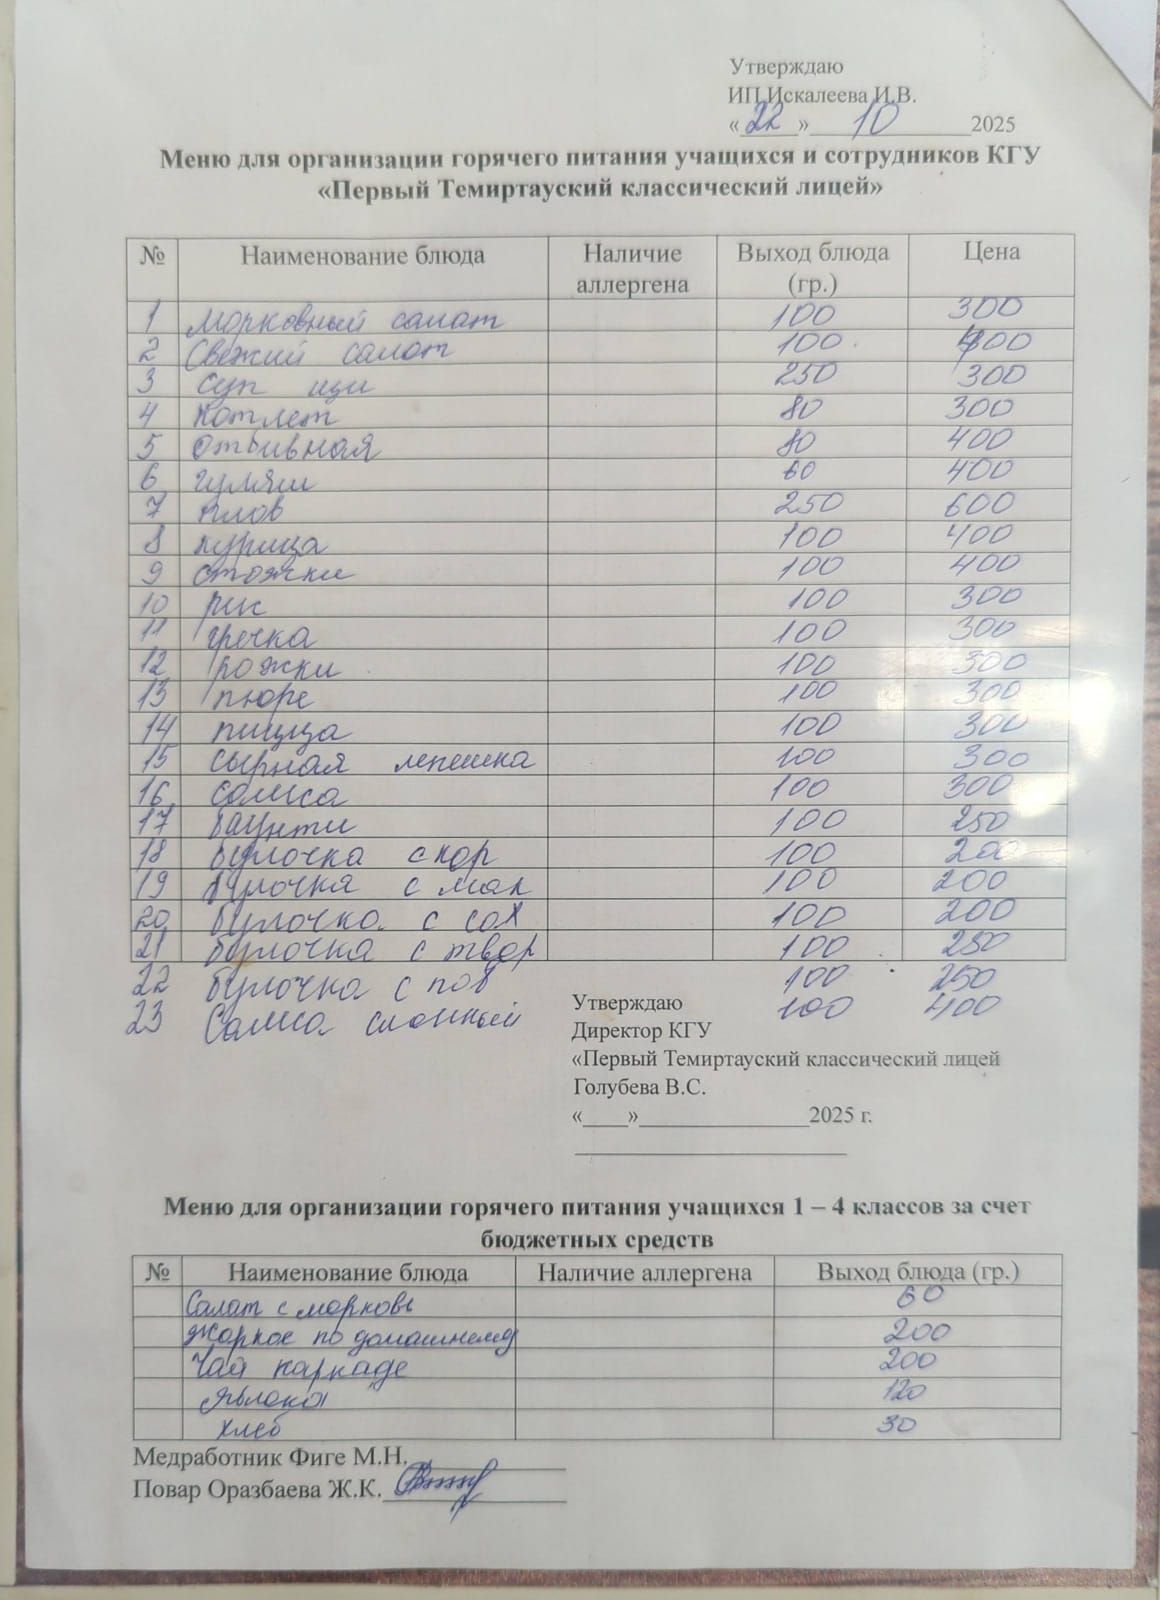 Утверждаю
ИП Искалеева И.В.
«22» 10 2025
Меню для организации горячего питания учащихся и сотрудников КГУ
«Первый Темиртауский классический лицей»
№ Наименование блюда Наличие аллергена Выход блюда (гр.) Цена
1 Морковный салат 100 300
2 Свежий салат 100 400
3 Суп щи 250 300
4 котлет 80 300
5 отбивная 80 400
6 гуляш 60 400
7 плов 250 600
8 курица 100 400
9 стожки 100 400
10 рис 100 300
11 гречка 100 300
12 рожки 100 300
13 пюре 100 300
14 пицца 100 300
15 сырная лепешка 100 300
16 самса 100 300
17 баунти 100 250
18 булочка с кор 100 200
19 булочка с мак 100 200
20 булочка с сах 100 200
21 булочка с твор 100 250
22 булочка с пов 100 250
23 Самса слонный 100 400
Утверждаю
Директор КГУ
«Первый Темиртауский классический лицей
Голубева В.С.
«____»_______________2025 г.
Меню для организации горячего питания учащихся 1 – 4 классов за счет
бюджетных средств
№ Наименование блюда Наличие аллергена Выход блюда (гр.)
Салат с морковь 60
Жаркое по домашнему 200
Чай каркаде 200
Яблока 120
хлеб 30
Медработник Фиге М.Н.
Повар Оразбаева Ж.К.